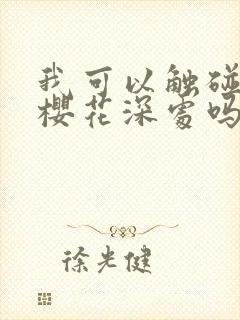 我可以触碰
樱花深处吗
徐光健